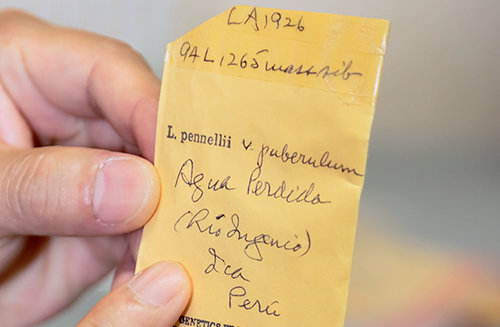 LA1926
94L1265 mass sib
L. pennellii v. puberulum
Agua Perdida
(Río Ingenio)
Ica
Perú
GENETICS